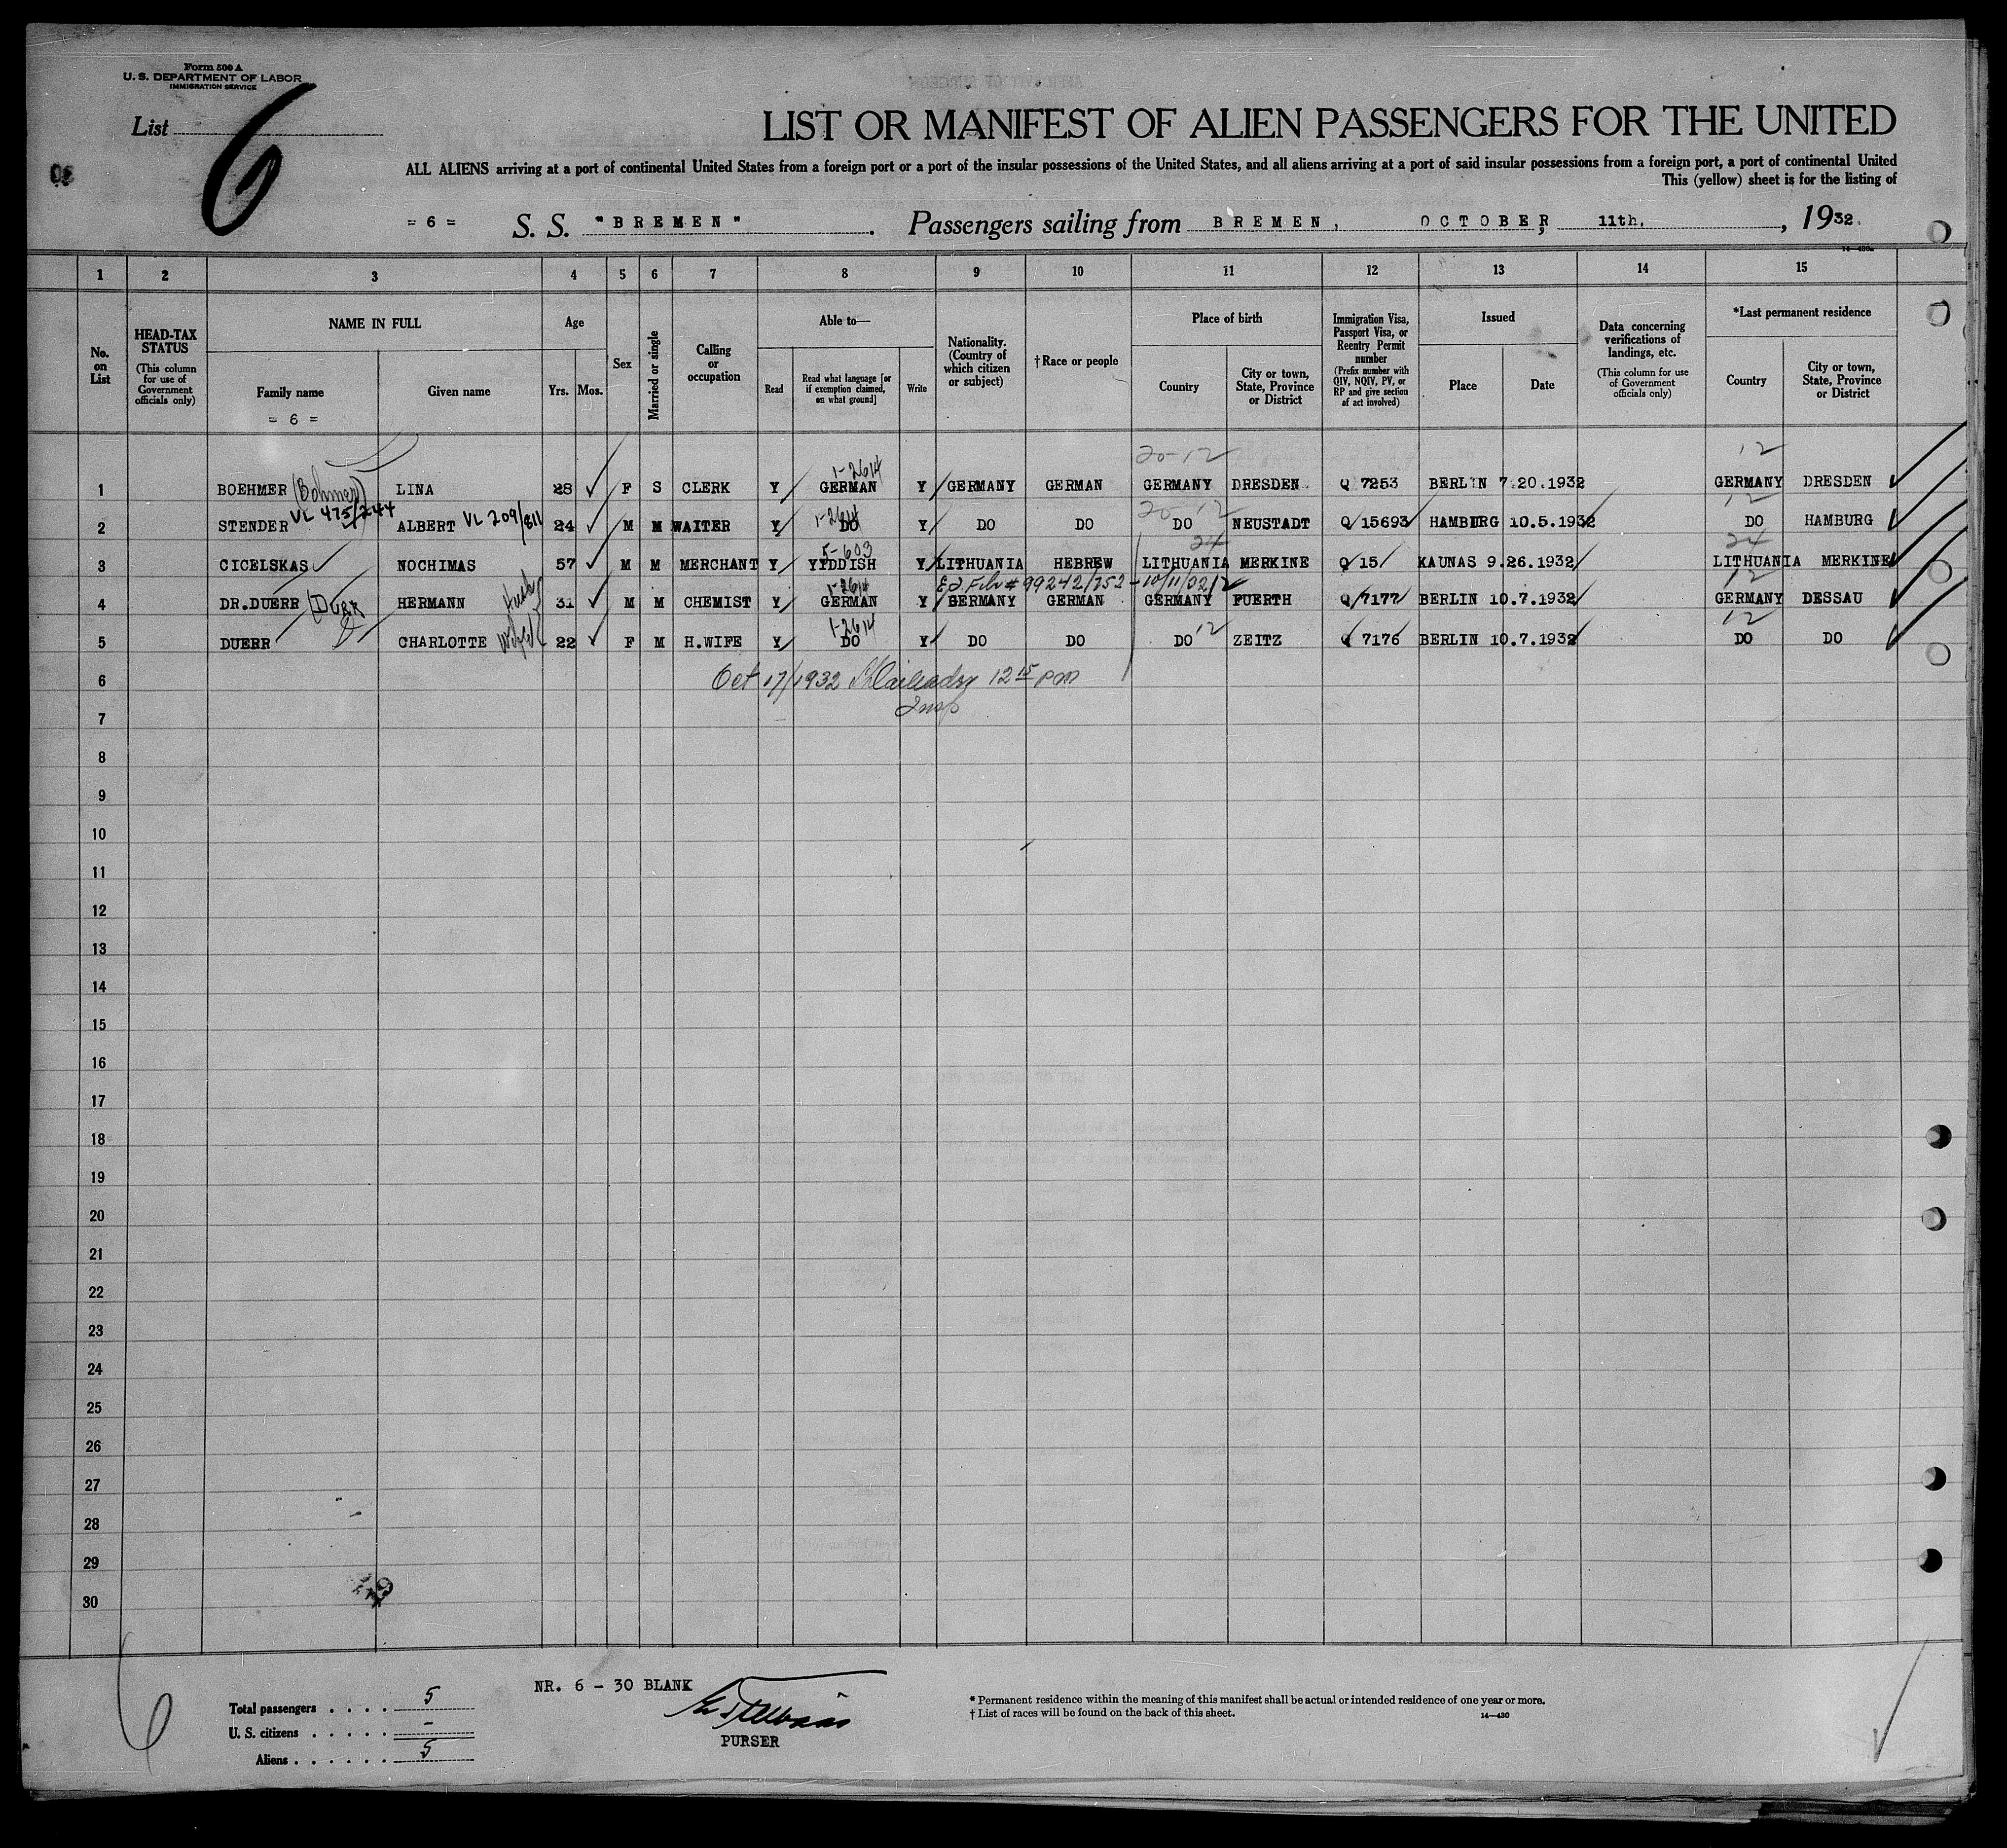 Form 500 A
U. S. DEPARTMENT OF LABOR
IMMIGRATION SERVICE
List 6
LIST OR MANIFEST OF ALIEN PASSENGERS FOR THE UNITED
ALL ALIENS arriving at a port of continental United States from a foreign port or a port of the insular possessions of the United States, and all aliens arriving at a port of said insular possessions from a foreign port, a port of continental United
This (yellow) sheet is for the listing of
= 6 = S. S. "BREMEN" . Passengers sailing from BREMEN, OCTOBER, 11th. , 1932.
14—430a
1 2 3 4 5 6 7 8 9 10 11 12 13 14 15
No. on List
HEAD-TAX STATUS
(This column for use of Government officials only)
NAME IN FULL
Family name
= 6 =
Given name
Age
Yrs. Mos.
Sex
Married or single
Calling or occupation
Able to—
Read
Read what language [or if exemption claimed, on what ground]
Write
Nationality. (Country of which citizen or subject)
† Race or people
Place of birth
Country
City or town, State, Province or District
Immigration Visa, Passport Visa, or Reentry Permit number
(Prefix number with QIV, NQIV, PV, or RP and give section of act involved)
Issued
Place
Date
Data concerning verifications of landings, etc.
(This column for use of Government officials only)
*Last permanent residence
Country
City or town, State, Province or District
1-2614 20-12 12
1 BOEHMER (Bohmer) LINA 28 F S CLERK Y GERMAN Y GERMANY GERMAN GERMANY DRESDEN Q 7253 BERLIN 7.20.1932 GERMANY DRESDEN
VL 475/244 VL 209/811 1-2614 20-12 12
2 STENDER ALBERT 24 M M WAITER Y DO Y DO DO DO NEUSTADT Q 15693 HAMBURG 10.5.1932 DO HAMBURG
5-603 24 24
3 CICELSKAS NOCHIMAS 57 M M MERCHANT Y YIDDISH Y LITHUANIA HEBREW LITHUANIA MERKINE Q 15 KAUNAS 9.26.1932 LITHUANIA MERKINE
1-2614 99242/252 12 12
4 DR.DUERR (DURR HERMANN 31 M M CHEMIST Y GERMAN Y GERMANY GERMAN GERMANY FUERTH Q 7177 BERLIN 10.7.1932 GERMANY DESSAU
1-2614 12 12
5 DUERR CHARLOTTE 22 F M H.WIFE Y DO Y DO DO DO ZEITZ Q 7176 BERLIN 10.7.1932 DO DO
6 Oct 17/1932 12 15 pm
7 Insp
8
9
10
11
12
13
14
15
16
17
18
19
20
21
22
23
24
25
26
27
28
29
30
NR. 6 - 30 BLANK
PURSER
Total passengers . . . . 5
U. S. citizens . . . . . -
Aliens . . . . . . 5
6
* Permanent residence within the meaning of this manifest shall be actual or intended residence of one year or more.
† List of races will be found on the back of this sheet.
14—430